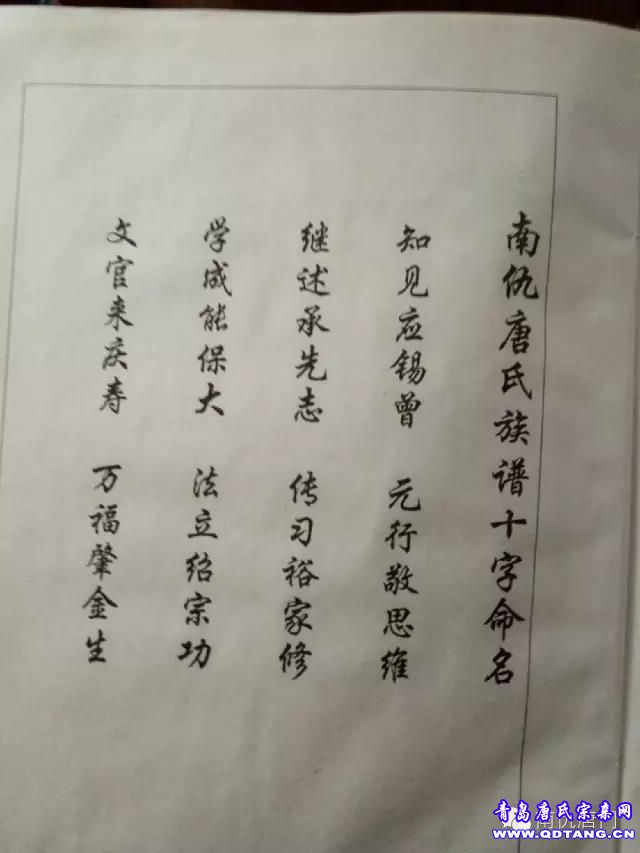 南仇唐氏族谱十字命名
知见应锡曾 元行敬思维
继述承先志 传习裕家修
学成能保大 法立绍宗功
文官来庆寿 万福肇金生
青岛唐氏宗亲网
WWW.QDTANG.CN